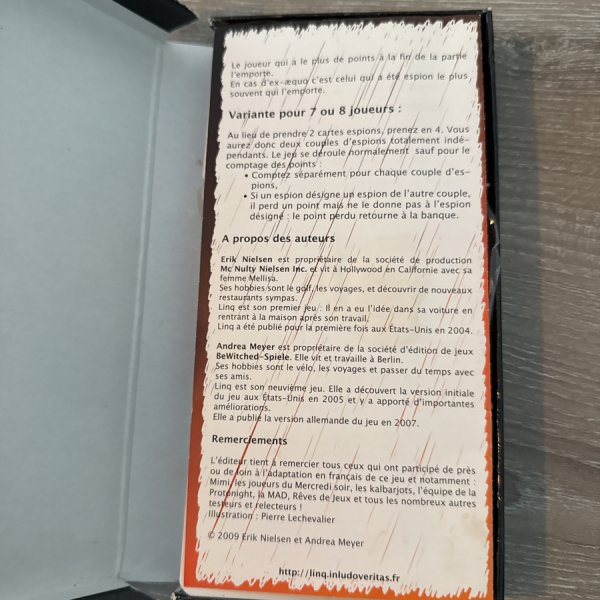 Le joueur qui a le plus de points à la fin de la partie
l'emporte.
En cas d'ex-æquo c'est celui qui a été espion le plus
souvent qui l'emporte.
Variante pour 7 ou 8 joueurs :
Au lieu de prendre 2 cartes espions, prenez en 4. Vous
aurez donc deux couples d'espions totalement indé-
pendants. Le jeu se déroule normalement sauf pour le
comptage des points :
• Comptez séparément pour chaque couple d'es-
pions,
• Si un espion désigne un espion de l'autre couple,
il perd un point mais ne le donne pas à l'espion
désigné : le point perdu retourne à la banque.
A propos des auteurs
Erik Nielsen est propriétaire de la société de production
Mc Nulty Nielsen Inc. et vit à Hollywood en Californie avec sa
femme Mellisa.
Ses hobbies sont le golf, les voyages, et découvrir de nouveaux
restaurants sympas.
Linq est son premier jeu : Il en a eu l'idée dans sa voiture en
rentrant à la maison après son travail.
Linq a été publié pour la première fois aux États-Unis en 2004.
Andrea Meyer est propriétaire de la société d'édition de jeux
BeWitched-Spiele. Elle vit et travaille à Berlin.
Ses hobbies sont le vélo, les voyages et passer du temps avec
ses amis.
Linq est son neuvième jeu. Elle a découvert la version initiale
du jeu aux États-Unis en 2005 et y a apporté d'importantes
améliorations.
Elle a publié la version allemande du jeu en 2007.
Remerciements
L'éditeur tient à remercier tous ceux qui ont participé de près
ou de loin à l'adaptation en français de ce jeu et notamment :
Mimi, les joueurs du Mercredi soir, les kalbarjots, l'équipe de la
Protonight, la MAD, Rêves de Jeux et tous les nombreux autres
testeurs et relecteurs !
Illustration : Pierre Lechevalier
© 2009 Erik Nielsen et Andrea Meyer
http://linq.inludoveritas.fr